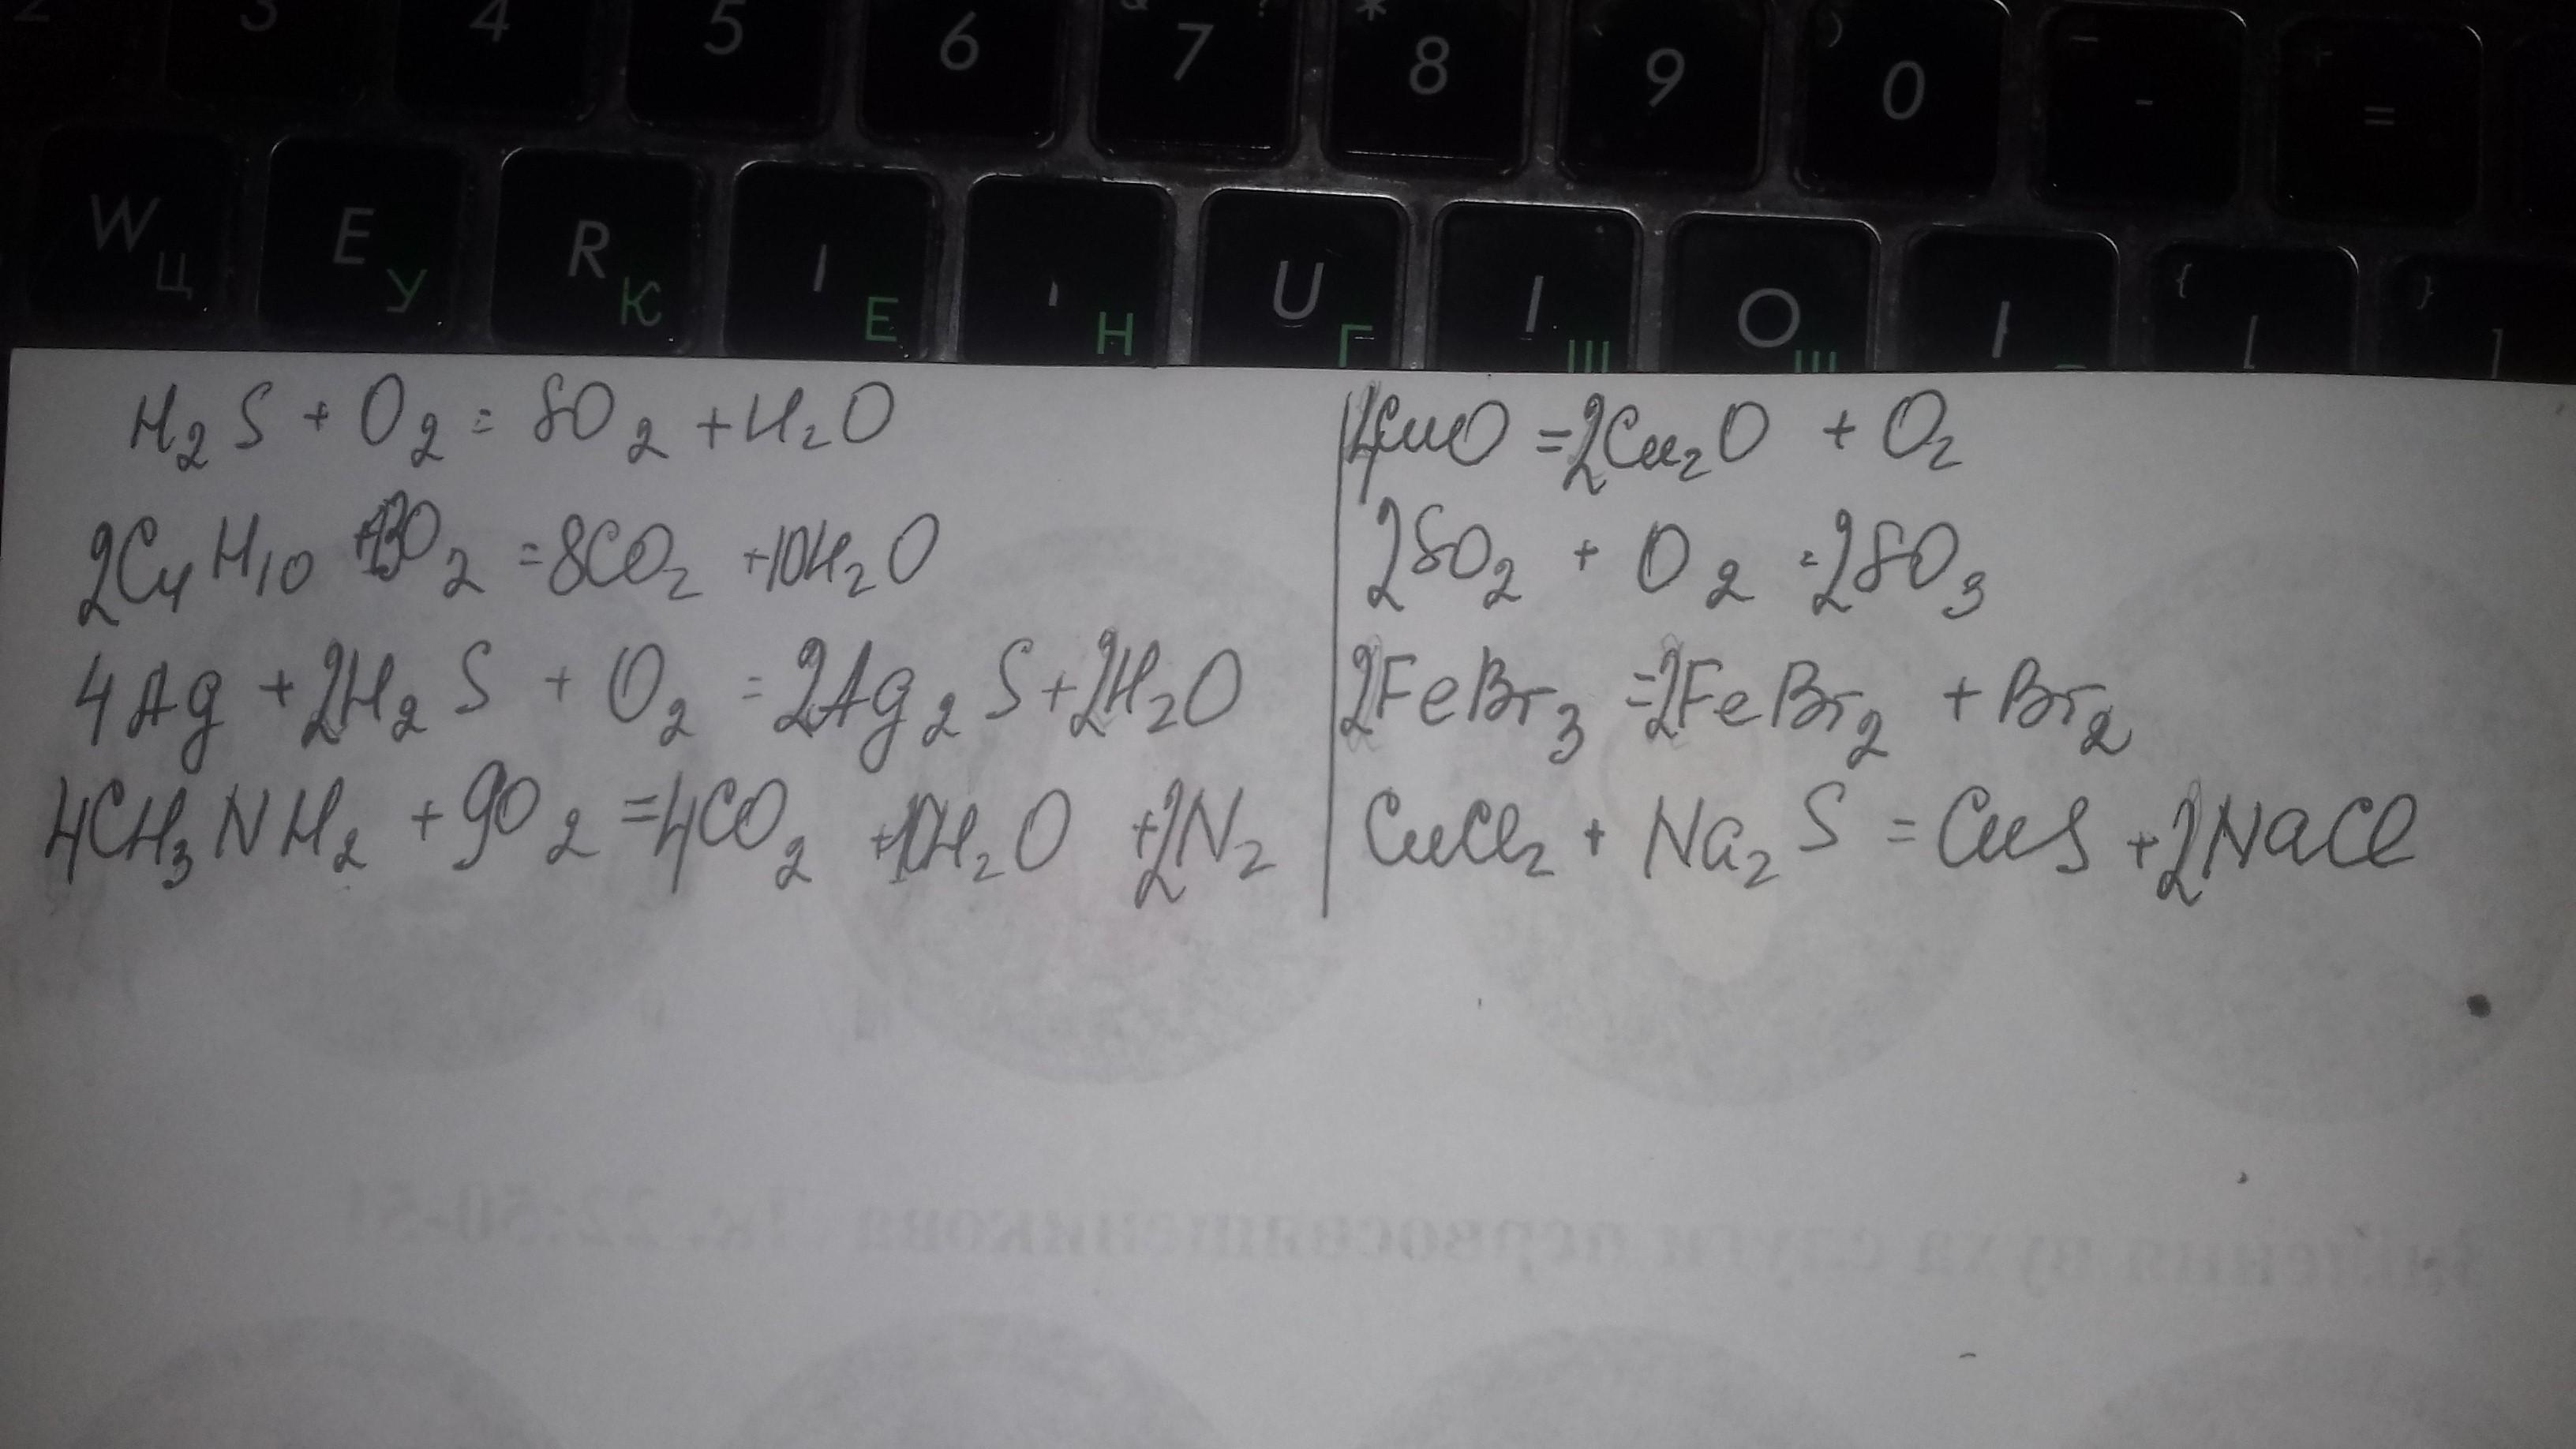 3 4 5 6 7 8 9 0 - =
W Ц E У R К Е Н U Г Ш O Щ { [ } ]
H₂S + O₂ = SO₂ + H₂O
2C₄H₁₀ + 13O₂ = 8CO₂ + 10H₂O
4Ag + 2H₂S + O₂ = 2Ag₂S + 2H₂O
4CH₃NH₂ + 9O₂ = 4CO₂ + 10H₂O + 2N₂
4CuO = 2Cu₂O + O₂
2SO₂ + O₂ = 2SO₃
2FeBr₃ = 2FeBr₂ + Br₂
CuCl₂ + Na₂S = CuS + 2NaCl